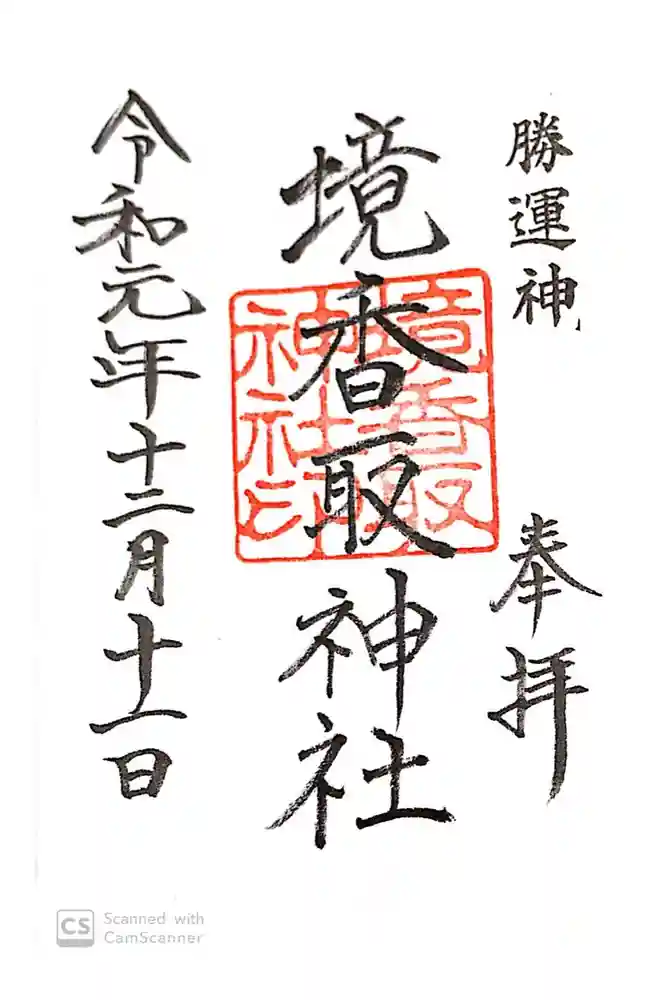 勝運神
奉拝
境香取神社
境香取神社印
令和元年十二月十一日
CS Scanned with
CamScanner